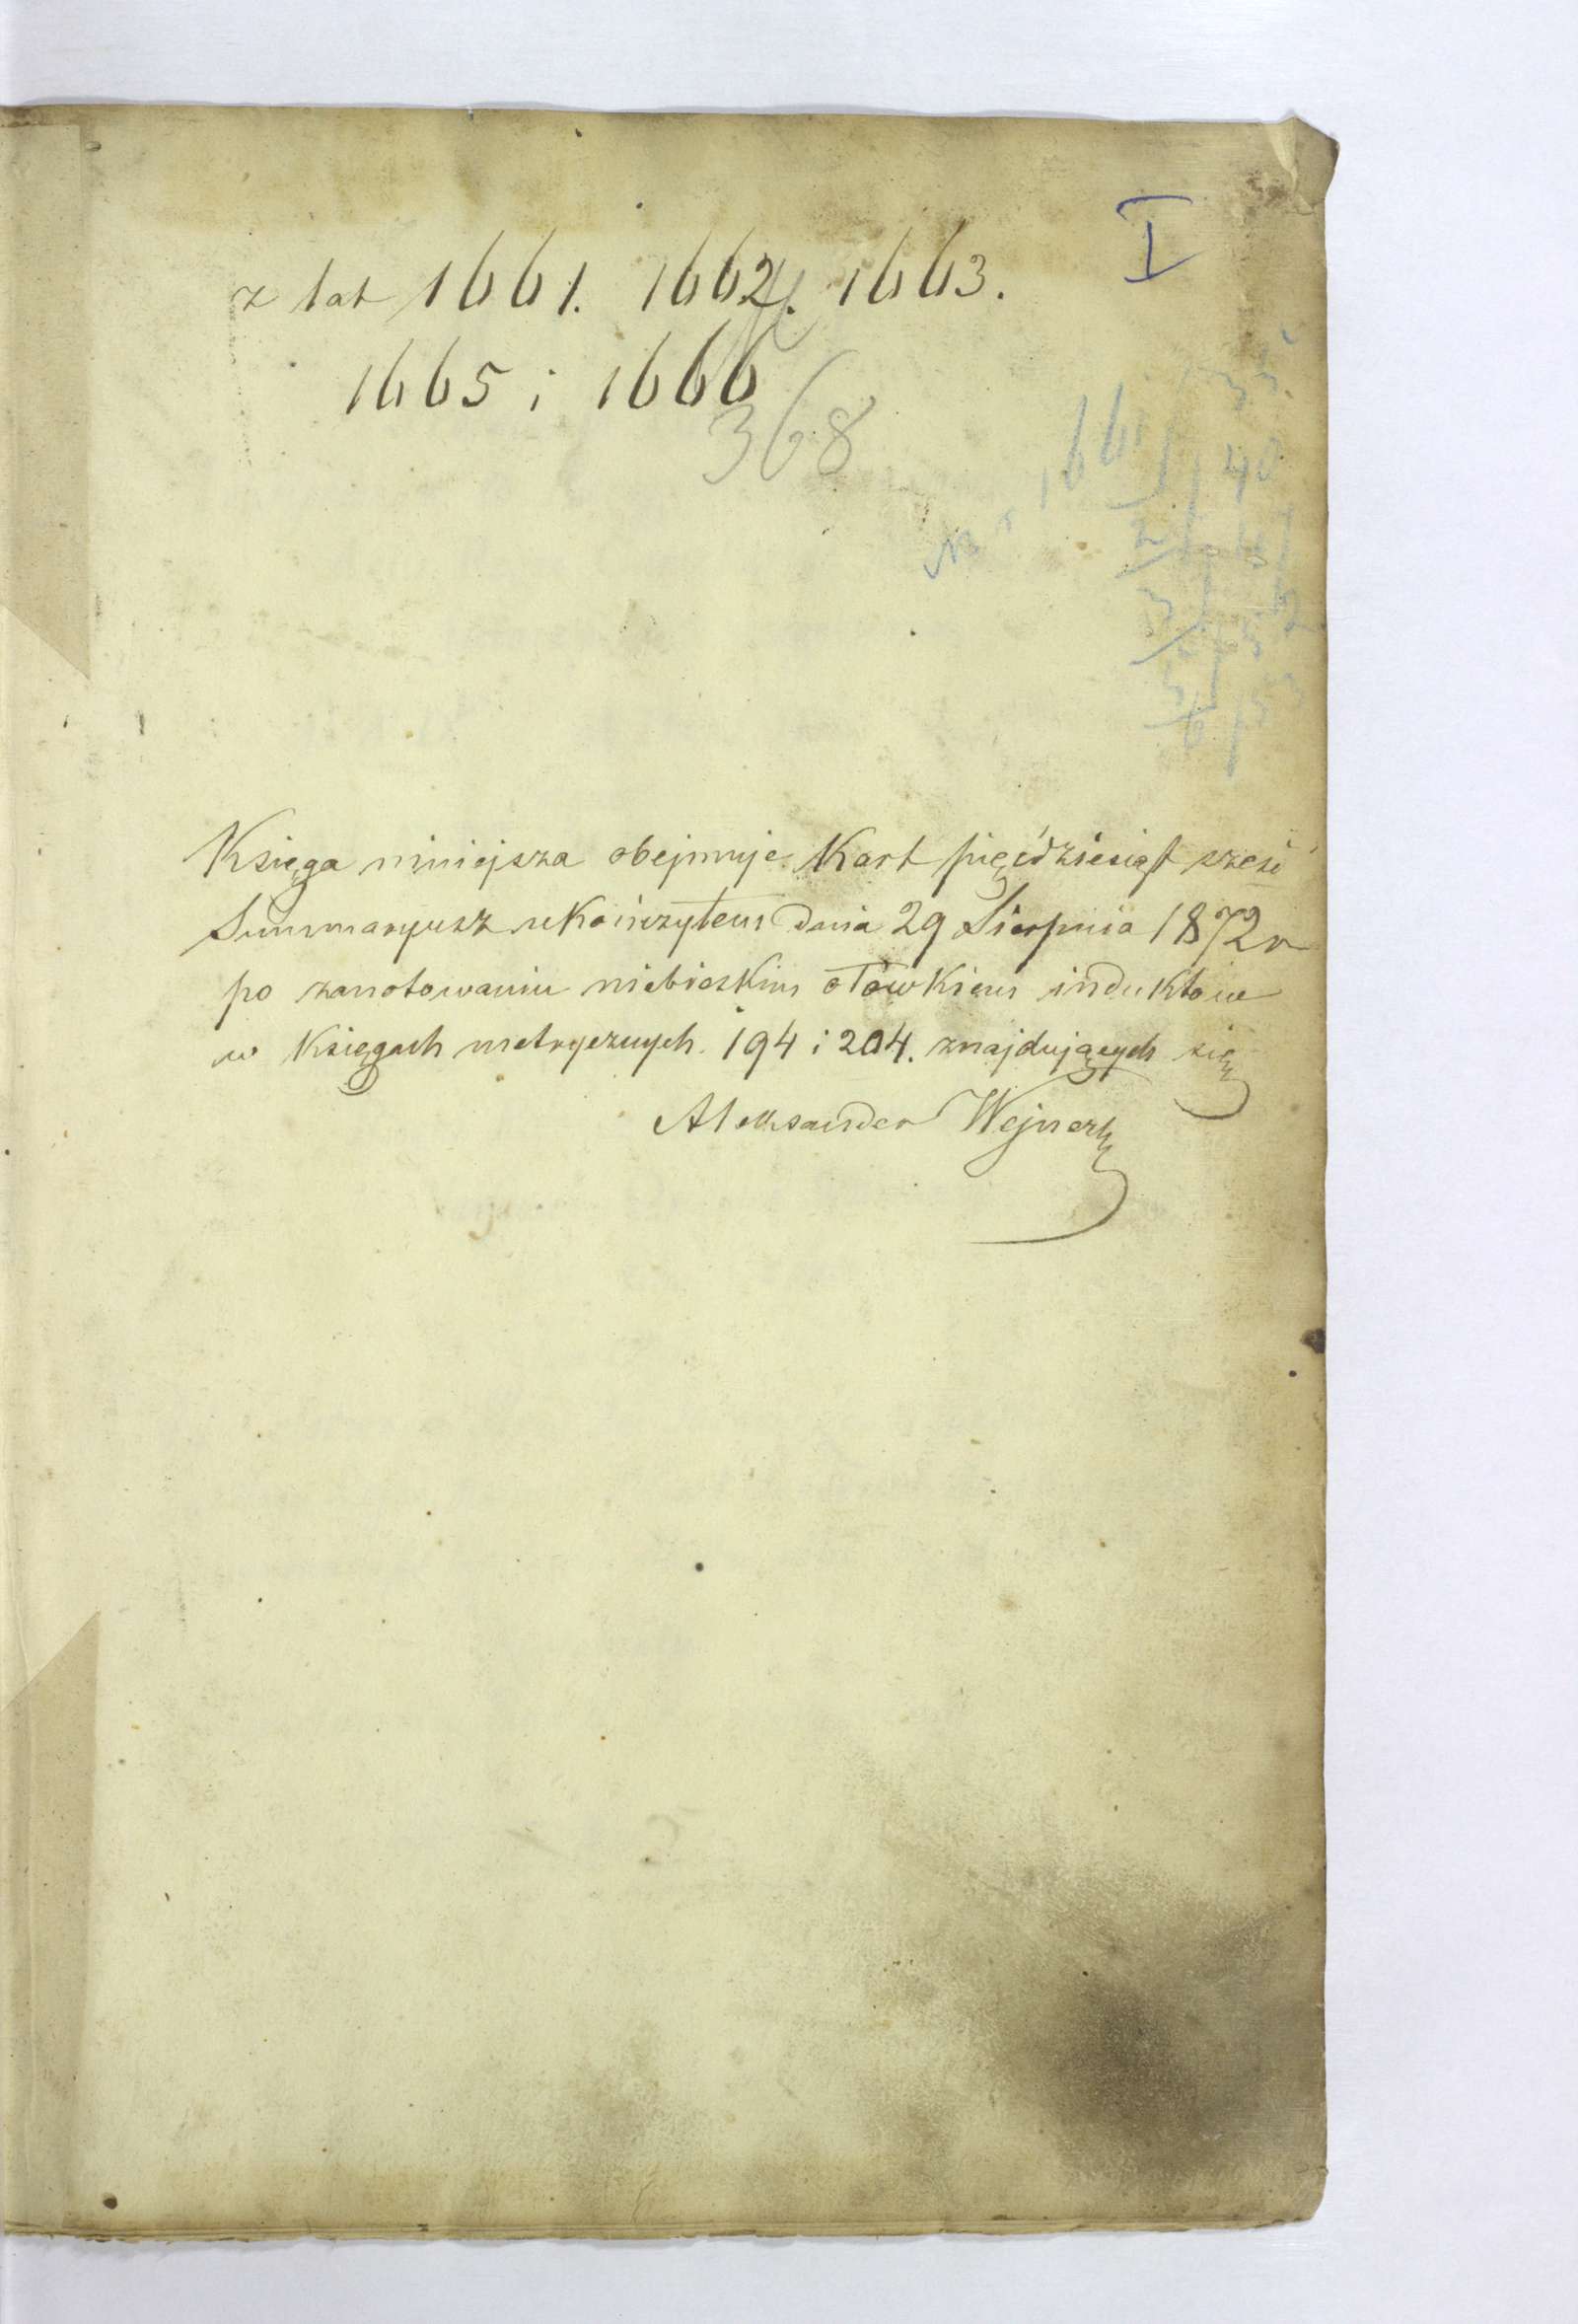 I
z lat 1661. 1662. 1663.
1665 i 1666
368
1661
35
40
2
3
5
6
Księga niniejsza obejmuje Kart pięćdziesiąt sześć
Summaryusz ukończyłem dnia 29 Sierpnia 1872 r
po zanotowaniu niebieskim ołówkiem induktów
w Księgach metrycznych. 194 i 204. znajdujących się
Aleksander Wejnert